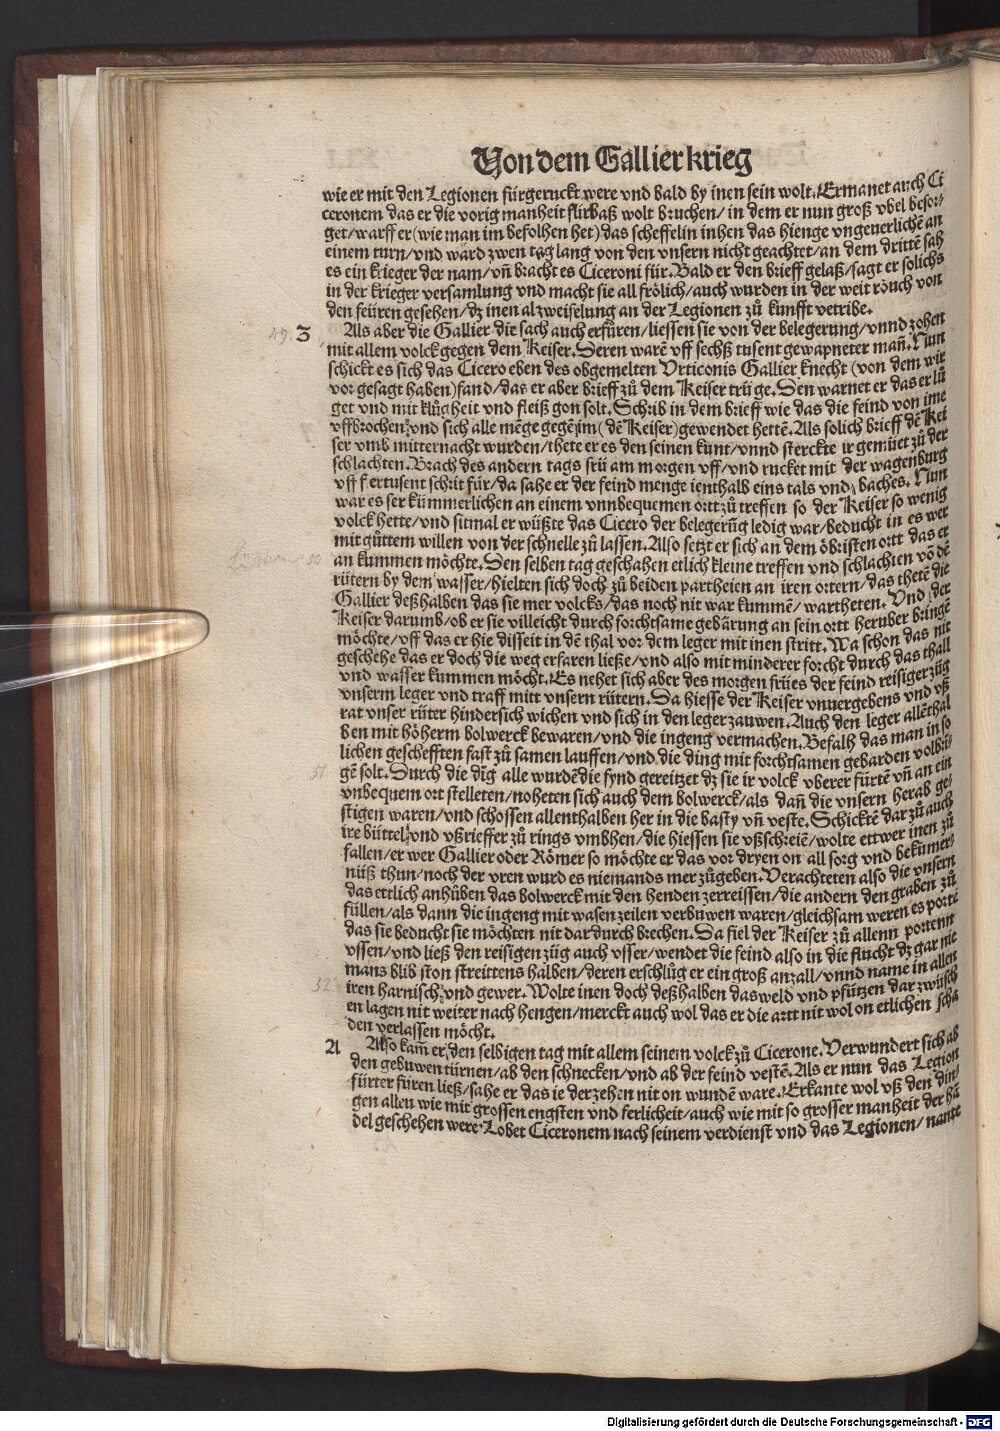 Von dem Gallier krieg
wie er mit den Legionen fürgeruckt were vnd bald by inen sein wolt. Ermanet auch Ci
ceronem das er die vorig manheit fürbaß wolt bruchen/ in dem er nun groß vbel besor/
get/ warff er (wie man im befolhen het) das scheffelin inhen das hienge vngeuerlichē an
einem turn/ vnd ward zwen tag lang von den vnsern nicht geachtet/ an dem drittē sah
es ein krieger der nam/ vn̄ bracht es Ciceroni für. Bald er den brieff gelaß/ sagt er solichs
in der krieger versamlung vnd macht sie all frölich/ auch wurden in der weit röuch von
den feüren gesehen/ dz inen al zweifelung an der Legionen zů kunfft vetribe.
49. 3 Als aber die Gallier die sach auch erfüren/ liessen sie von der belegerung/ vnnd zohen
mit allem volck gegen dem Keiser. Deren warē vff sechß tusent gewapneter man̄. Nun
schickt es sich das Cicero eben des obgemelten Vrticonis Gallier knecht (von dem wir
vor gesagt haben) fand/ das er aber brieff zů dem Keiser trüge. Den warnet er das er lů
get vnd mit klůgheit vnd fleiß gon solt. Schrib in dem brieff wie das die feind von ime
vffbrochen vnd sich alle mēge gegē im (dē Keiser) gewendet hettē. Als solich brieff dē Kei
ser vmb mitternacht wurden/ thete er es den seinen kunt/ vnnd sterckte ir gemüet zů der
schlachten. Brach des andern tags frü am morgen vff/ vnd rucket mit der wagenburg
vff fertusent schrit für/ da sahe er der feind menge ienthalb eins tals vnd baches. Nun
war es ser kümmerlichen an einem vnnbequemen ortt zů treffen so der Keiser so wenig
volck hette/ vnd sitmal er wüßte das Cicero der belegerūg ledig war/ beducht in es wer
mit gůttem willen von der schnelle zů lassen. Also setzt er sich an dem öbristen ortt das er
50 an kummen möchte. Den selben tag geschahen etlich kleine treffen vnd schlachten vō dē
rütern by dem wasser/ hielten sich doch zů beiden partheien an iren ortern/ das thetē die
Gallier deßhalben das sie mer volcks/ das noch nit war kummē/ wartheten. Vnd der
Keiser darumb/ ob er sie villeicht durch forchtsame gebärung an sein ortt heruber bringē
möchte/ vff das er hie disseit in dē thal vor dem leger mit inen stritt. Wa schon das nit
geschehe das er doch die weg erfaren ließe/ vnd also mit minderer forcht durch das thall
vnd wasser kummen möcht. Es nehet sich aber des morgen frües der feind reisiger züg
vnserm leger vnd traff mitt vnsern rütern. Da hiesse der Keiser vnuergebens vnd vß
rat vnser rüter hindersich wichen vnd sich in den leger zauwen. Auch den leger allēthal
ben mit höherm bolwerck bewaren/ vnd die ingeng vermachen. Befalh das man in so
lichen geschefften fast zů samen lauffen/ vnd die ding mit forchtsamen gebarden volbri/
51 gē solt. Durch die dīg alle wurdē die fynd gereitzet dz sie ir volck vberer fürtē vn̄ an ein
vnbequem ort stelleten/ noheten sich auch dem bolwerck/ als dan̄ die vnsern herab ge/
stigen waren/ vnd schossen allenthalben her in die basty vn̄ veste. Schicktē dar zů auch
ire büttel vnd vßrieffer zů rings vmbhen/ die hiessen sie vßschreiē/ wolte ettwer inen zů
fallen/ er wer Gallier oder Römer so möchte er das vor dryen on all sorg vnd bekümer/
nüß thun/ noch der vren wurd es niemands mer zůgeben. Verachteten also die vnsern
das ettlich anhüben das bolwerck mit den henden zerreissen/ die andern den graben zů
füllen/ als dann die ingeng mit wasen zeilen verbuwen waren/ gleichsam weren es portē
das sie beducht sie möchten nit dardurch brechen. Da fiel der Keiser zů allenn portenn
vssen/ vnd ließ den reisigen züg auch vsser/ wendet die feind also in die flucht dz gar nie
mans blib ston streittens halben/ deren erschlůg er ein groß anzall/ vnnd name in allen
52 iren harnisch vnd gewer. Wolte inen doch deßhalben das weld vnd pfützen dar zwüsch
en lagen nit weiter nach hengen/ merckt auch wol das er die artt nit wol on etlichen scha
den verlassen möcht.
A Also kam̄ er den selbigen tag mit allem seinem volck zů Cicerone. Verwundert sich ab
den gebuwen türnen/ ab den schnecken/ vnd ab der feind vestē. Als er nun das Legion
fürter füren ließ/ sahe er das ie der zehen nit on wundē ware. Erkante wol vß den din/
gen allen wie mit grossen engsten vnd ferlicheit/ auch wie mit so grosser manheit der hā
del geschehen were. Lobet Ciceronem nach seinem verdienst vnd das Legionen/ nante
Digitalisierung gefördert durch die Deutsche Forschungsgemeinschaft - DFG